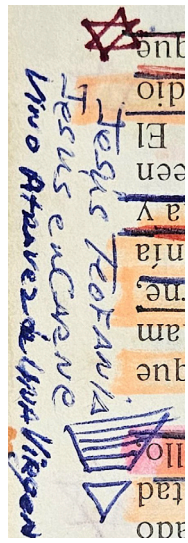 Jesus Teofania
Jesus encarne
Vino Atravez de una Virgen
que
dio
El
een
a y
anía
rne,
am
que
llo
tad
ado